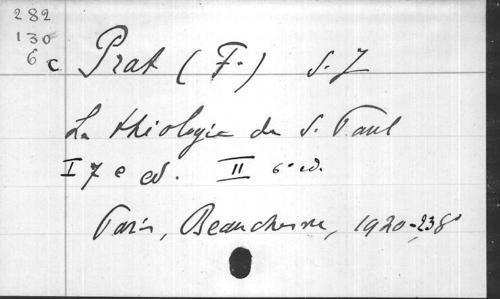 282
130
6 c
Prat (F.) S. J
La théologie de S. Paul
I 7e ed. II 6e ed.
Paris, Beauchesne, 1920-23 8°